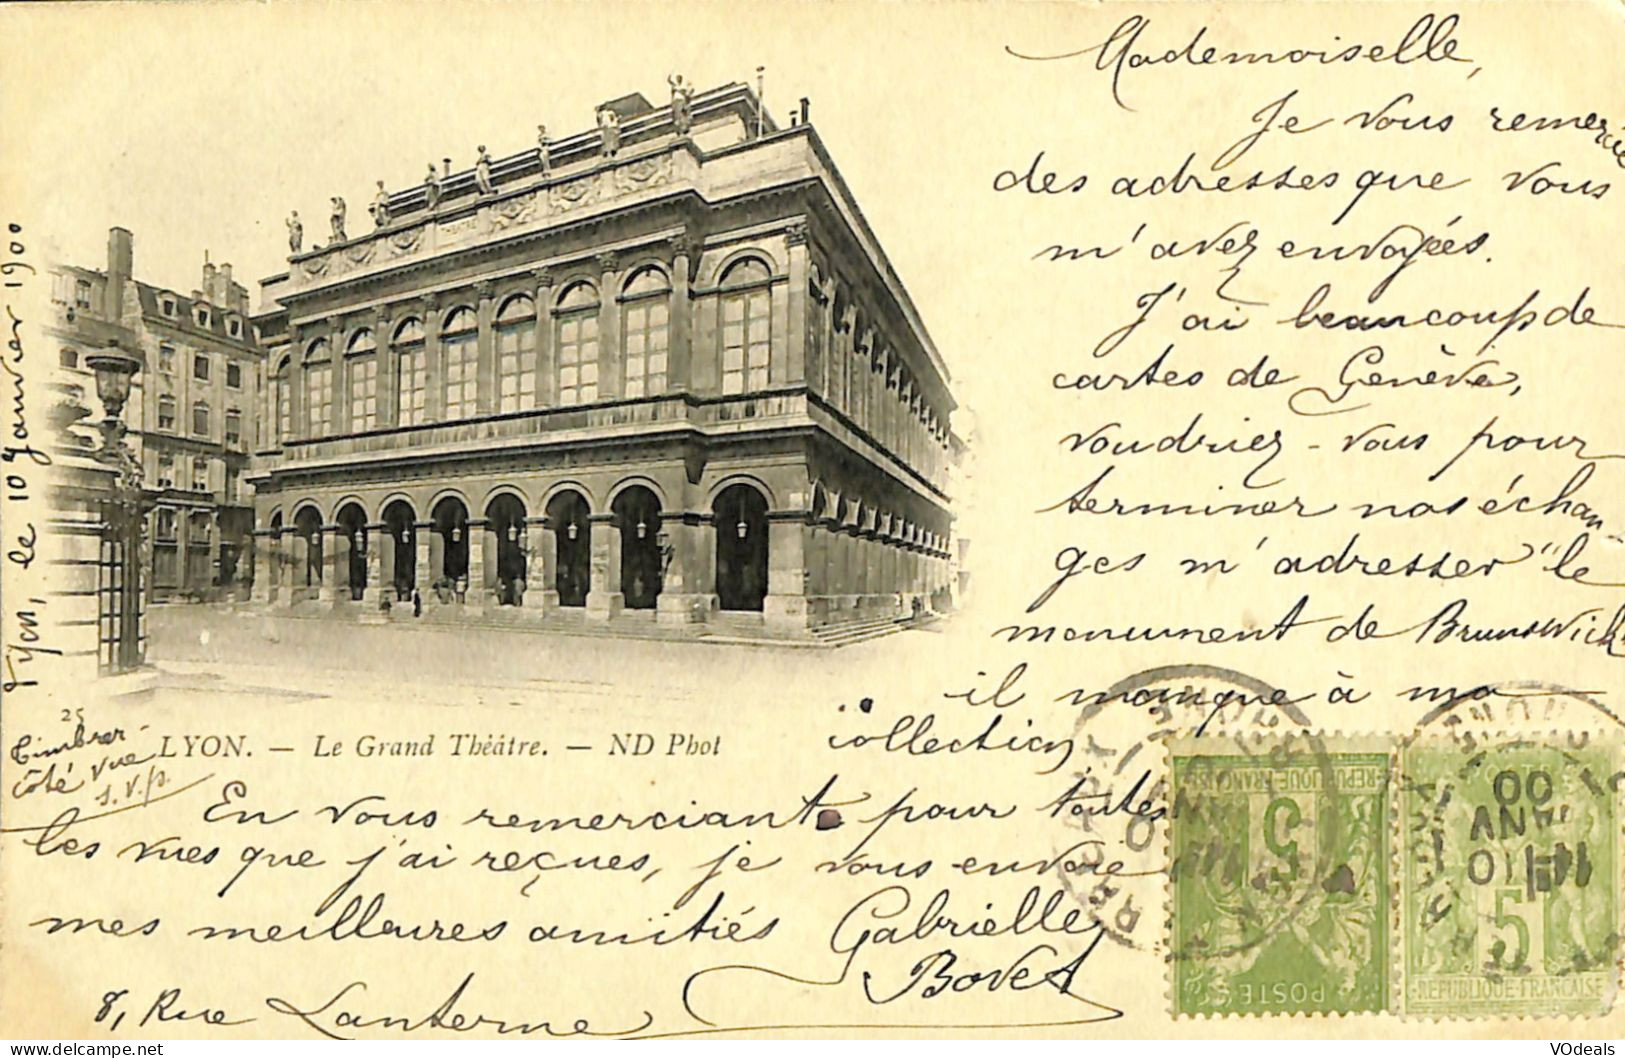 Mademoiselle,
Je vous remercie
des adresses que vous
m'avez envoyées.
J'ai beaucoup de
cartes de Genève,
voudriez-vous pour
terminer nos échan-
ges m'adresser "le
monument de Brunswick
il manque à ma
collection.
En vous remerciant pour toutes
les vues que j'ai reçues, je vous envoie
mes meilleures amitiés Gabrielle
Bovet
8, Rue Lanterne
Lyon, le 10 Janvier 1900
Timbrer
côté vue
s.v.p.
25
LYON. — Le Grand Théâtre. — ND Phot
THÉATRE
REPUBLIQUE FRANÇAISE
5
POSTES
5
REPUBLIQUE FRANÇAISE
10
JANV
00
VOdeals